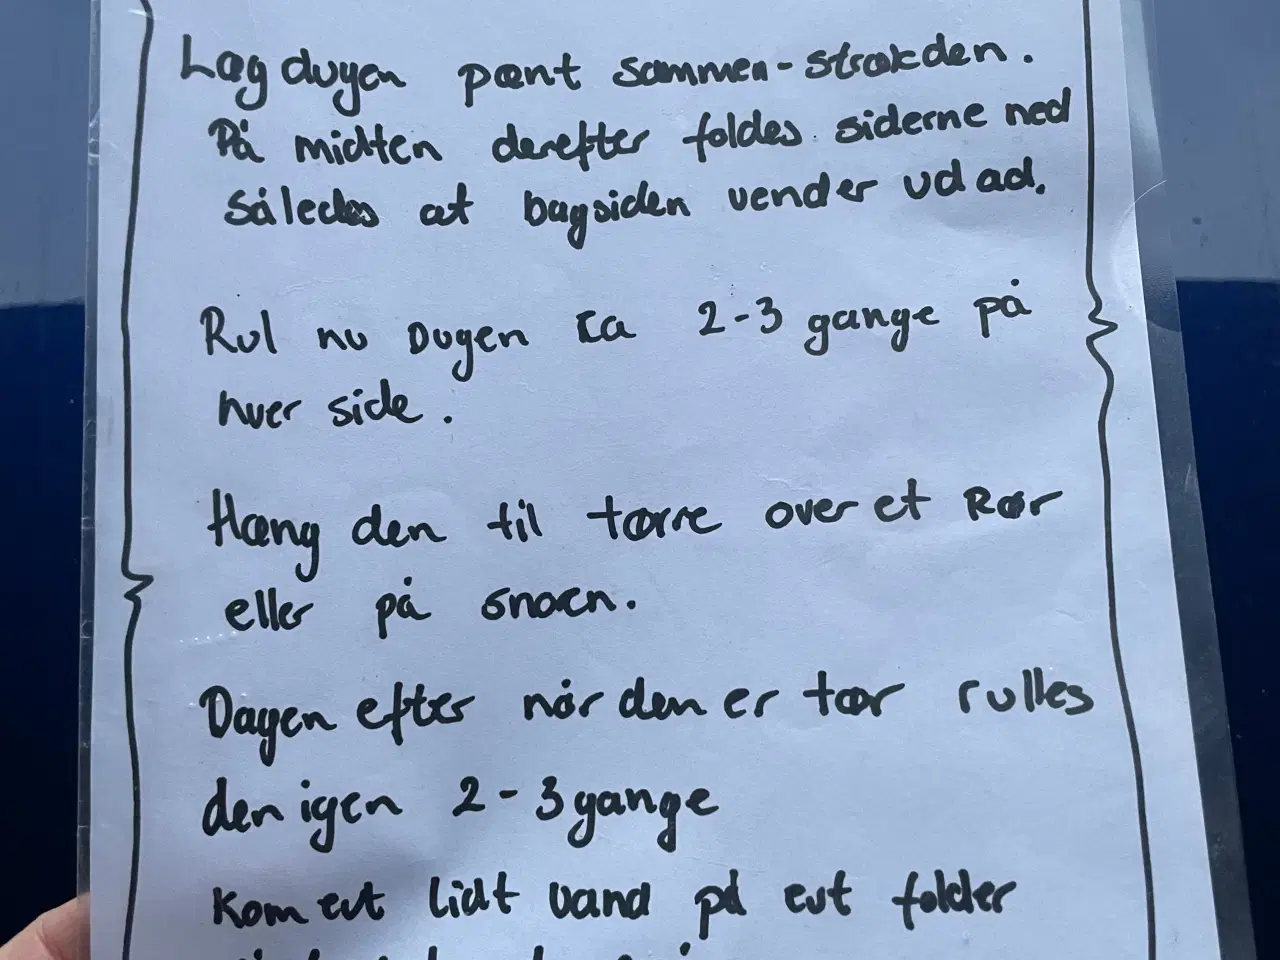 Læg dugen pænt sammen-strækden.
På midten derefter foldes siderne ned
Således at bagsiden vender ud ad.
Rul nu Dugen ca 2-3 gange på
hver side.
Hæng den til tørre over et Rør
eller på snoen.
Dagen efter når den er tør rulles
den igen 2-3 gange
Kom evt lidt vand på evt folder